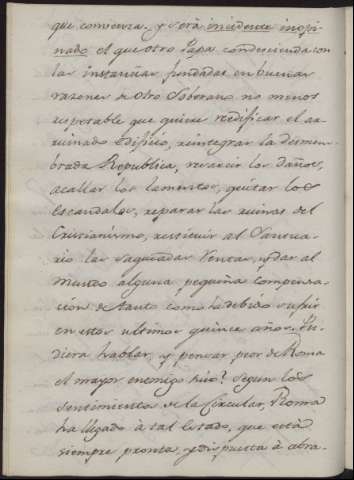 que comienza. y será incidente inopi-
nado el que otro Papa condescienda con
las instancias fundadas en buenas
razones de otro Soberano no menos
respetable que quiere redificar el ar-
ruinado edificio, reintegrar la desmem-
brada Republica, resarcir los daños,
acallar los lamentos, quitar los
escandalos, reparar las ruinas del
Cristianismo, restituir al Santua-
rio las sagradas rentas, y dar al
mundo alguna pequeña compensa-
ción de tanto como ha debido sufrir
en estos ultimos quince años. Pu-
diera hablar, y pensar peor de Roma
el mayor enemigo suio? Segun los
sentimientos de la Circular, Roma
ha llegado à tal estado, que està
siempre pronta, y dispuesta à abra-